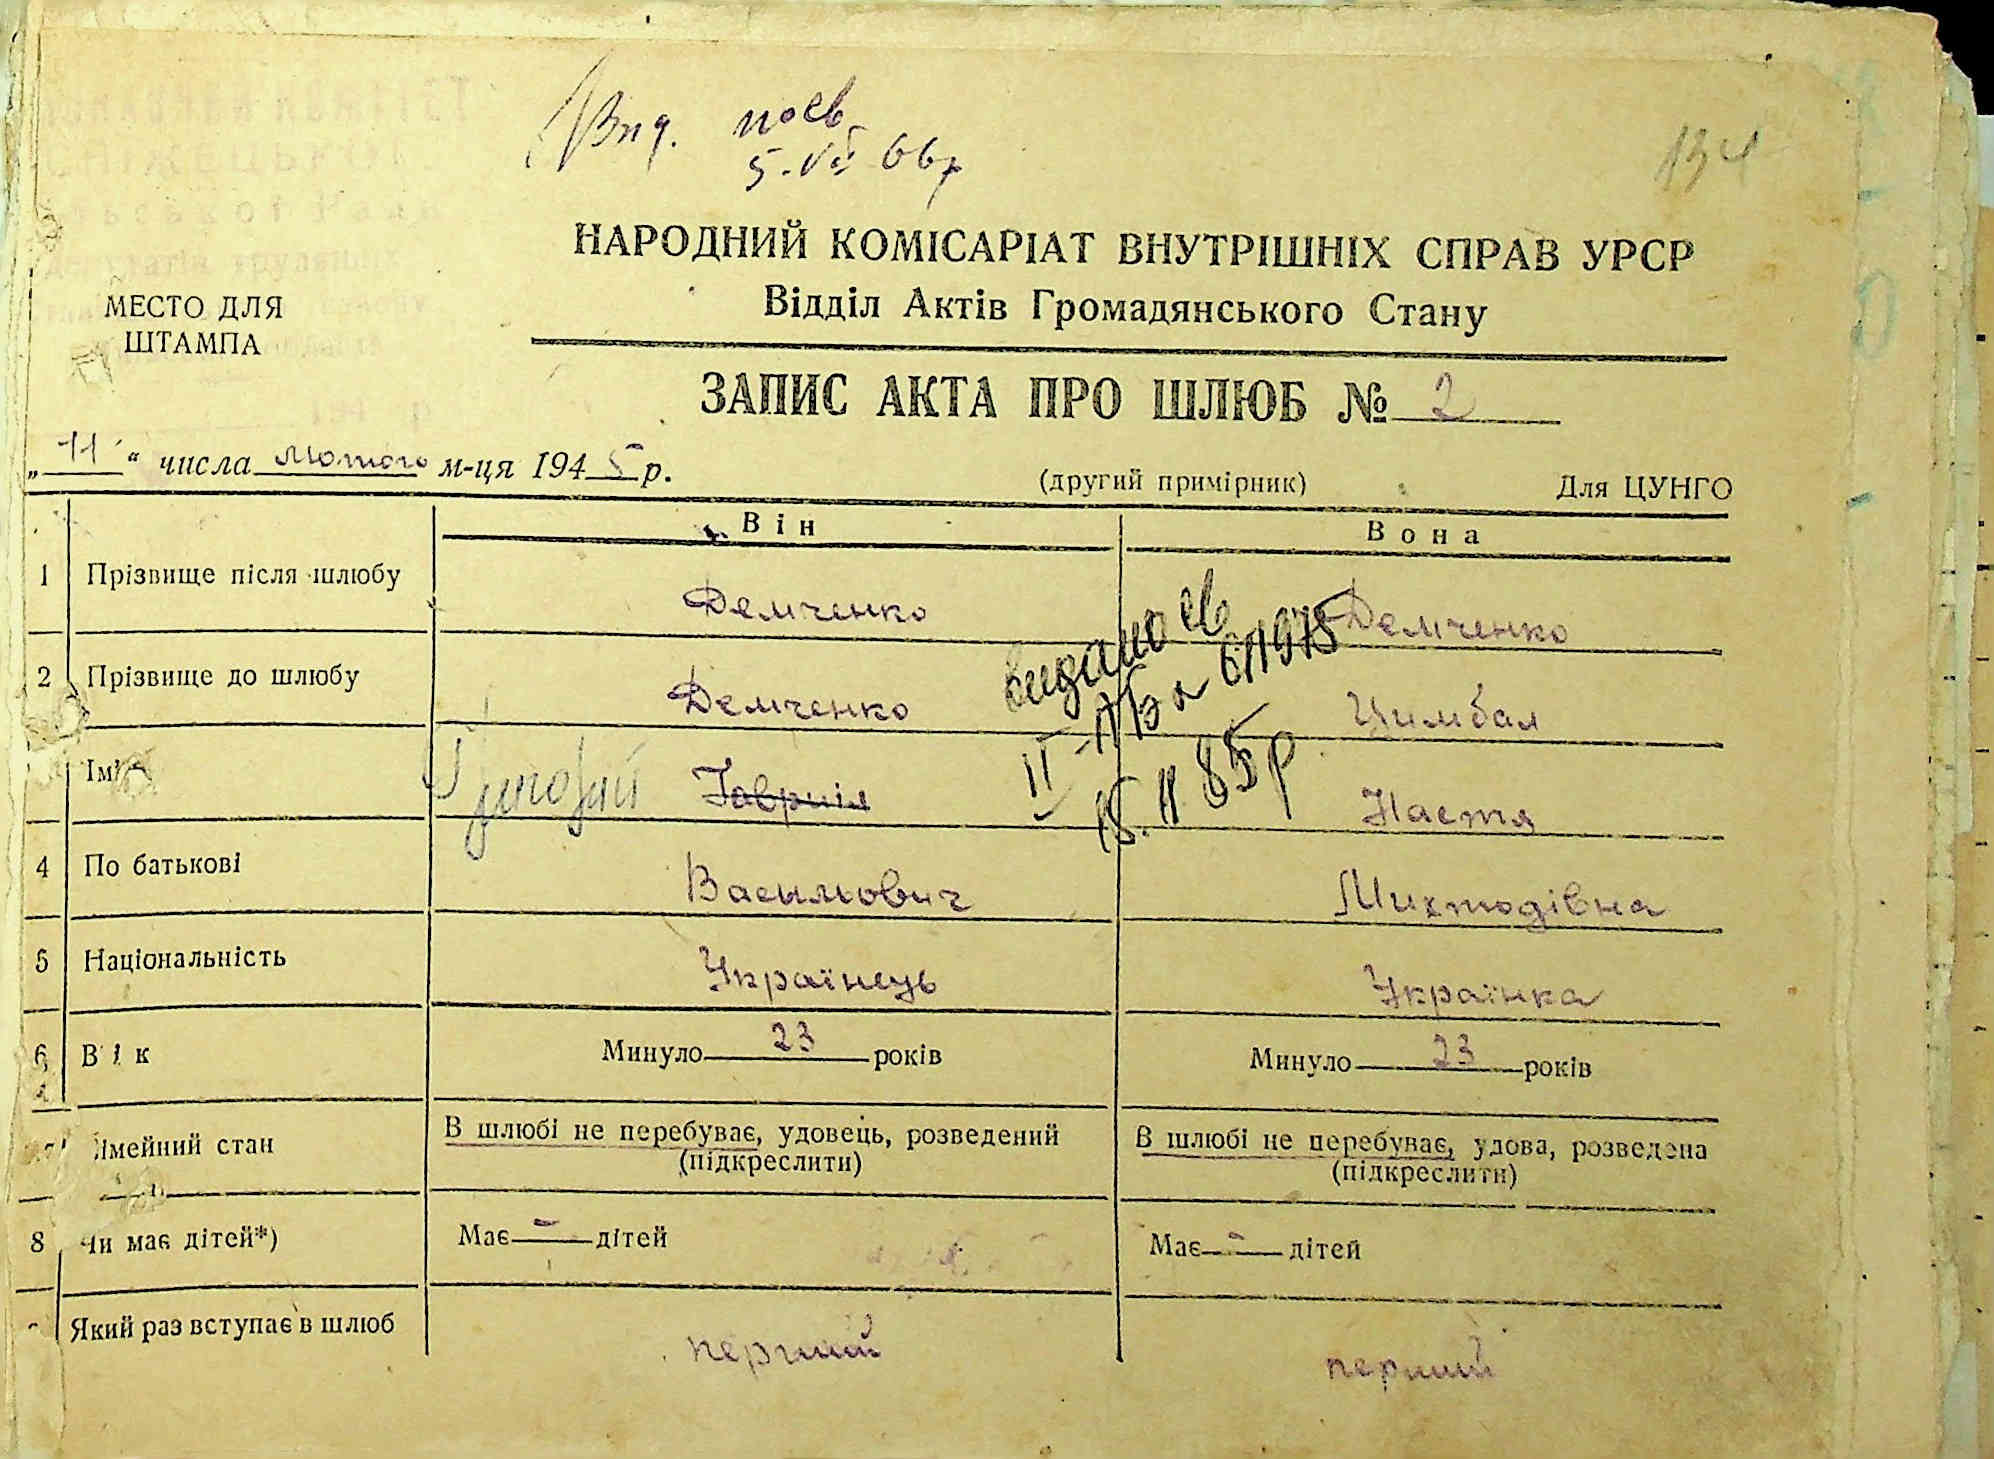 Вид. пов.
5.VІІ 66р
134
НАРОДНИЙ КОМІСАРІАТ ВНУТРІШНІХ СПРАВ УРСР
Відділ Актів Громадянського Стану
МЕСТО ДЛЯ
ШТАМПА
ЗАПИС АКТА ПРО ШЛЮБ № 2
„11“ числа лютого м-ця 1945 р.
(другий примірник) Для ЦУНГО
Він Вона
1 Прізвище після шлюбу Демченко Демченко
2 Прізвище до шлюбу Демченко Цимбал
видано св
ІІ-
611975
15.11.85р
Ім' Гавриїл Настя
4 По батькові Васильович
5 Національність Українець Українка
6 Вік Минуло 23 років Минуло 23 років
імейний стан В шлюбі не перебуває, удовець, розведений В шлюбі не перебуває, удова, розведена
(підкреслити) (підкреслити)
8 Чи має дітей*) Має - дітей Має - дітей
Який раз вступає в шлюб перший перший